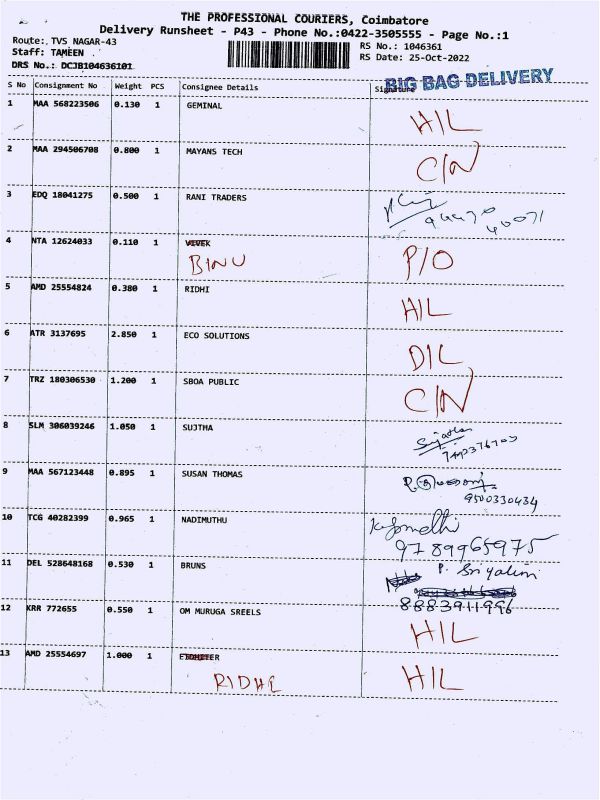 THE PROFESSIONAL COURIERS, Coimbatore
Delivery Runsheet - P43 - Phone No.:0422-3505555 - Page No.:1
Route: TVS NAGAR-43
Staff: TAMEEN
DRS No.: DCJB104636101
RS No.: 1046361
RS Date: 25-Oct-2022
BIG BAG DELIVERY
S No Consignment No Weight PCS Consignee Details Signature
1 MAA 568223506 0.130 1 GEMINAL H/L
2 MAA 294506708 0.800 1 MAYANS TECH C/N
3 EDQ 18041275 0.500 1 RANI TRADERS
4 NTA 12624033 0.110 1 VIVEK P/O
BINU
5 AMD 25554824 0.380 1 RIDHI H/L
6 ATR 3137695 2.850 1 ECO SOLUTIONS D/L
7 TRZ 180306530 1.200 1 SBOA PUBLIC C/N
8 SLM 306039246 1.050 1 SUJTHA
9 MAA 567123448 0.895 1 SUSAN THOMAS
9500330434
10 TCG 40282399 0.965 1 NADIMUTHU
9789965975
11 DEL 528648168 0.530 1 BRUNS P. Sriyalini
8883911996
12 KRR 772655 0.550 1 OM MURUGA SREELS H/L
13 AMD 25554697 1.000 1 H/L
RIDHI